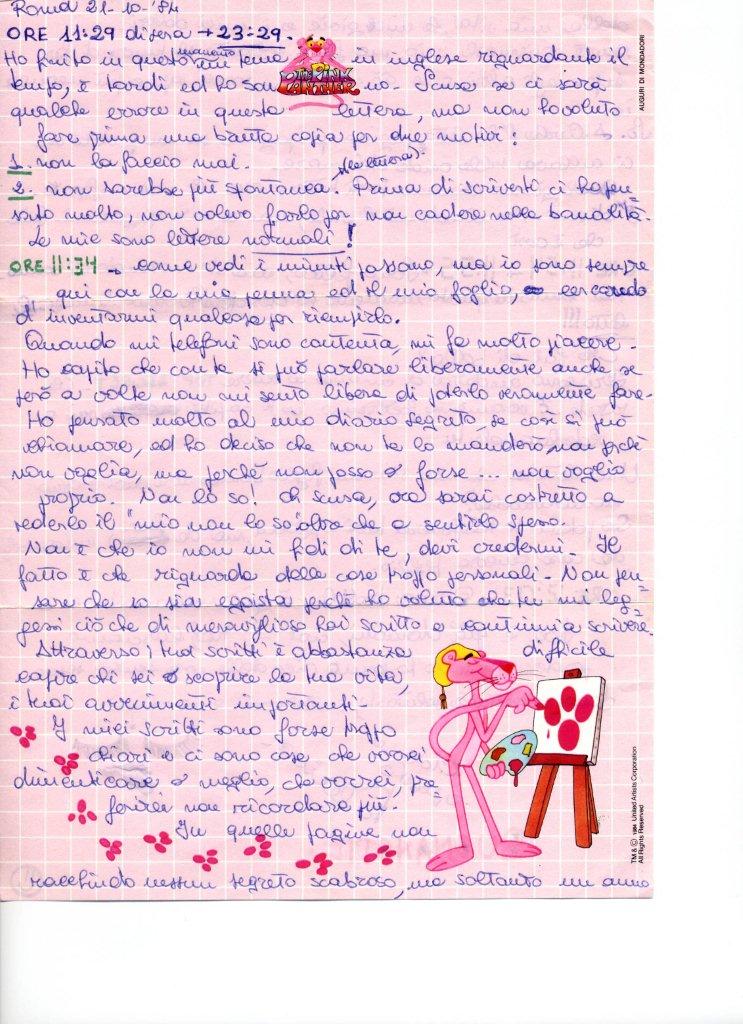 Roma 21-10-'84
ORE 11:29 di sera → 23:29.
Ho finito in questo momento un tema in inglese riguardante il
THE PINK PANTHER
tempo, è tardi ed ho sonno. Scusa se ci sarà
qualche errore in questa lettera, ma non ho voluto
fare prima una brutta copia per due motivi:
1. non la faccio mai.
2. non sarebbe più spontanea. (la lettera). Prima di scriverti ci ho pen=
sato molto, non volevo farlo per non cadere nella banalità.
Le mie sono lettere normali!
ORE 11:34 → come vedi i minuti passano, ma io sono sempre
qui con la mia penna ed il mio foglio, cercando
d'inventarmi qualcosa per riempirlo.
Quando mi telefoni sono contenta, mi fa molto piacere.
Ho capito che con te si può parlare liberamente anche se
però a volte non mi sento libera di poterlo veramente fare.
Ho pensato molto al mio diario segreto, se così si può
chiamare, ed ho deciso che non te lo manderò, non perché
non voglia, ma perché non posso o forse... non voglio
proprio. Non lo so! Oh scusa, ora sarai costretto a
vederlo il "mio non lo so" oltre che a sentirlo spesso.
Non è che io non mi fidi di te, devi credermi. Il
fatto è che riguarda delle cose troppo personali. Non pen=
sare che io sia egoista perché ho voluto che tu mi leg=
gessi ciò che di meraviglioso hai scritto e continui a scrivere.
Attraverso i tuoi scritti è abbastanza difficile
capire chi sei o scoprire la tua vita,
i tuoi avvenimenti importanti.
I miei scritti sono forse troppo
chiari e ci sono cose che vorrei
dimenticare o meglio, che vorrei, pre
ferirei non ricordare più.
In quelle pagine non
racchiudo nessun segreto scabroso, ma soltanto un anno
AUGURI DI MONDADORI
TM & © 1984 United Artists Corporation
All Rights Reserved